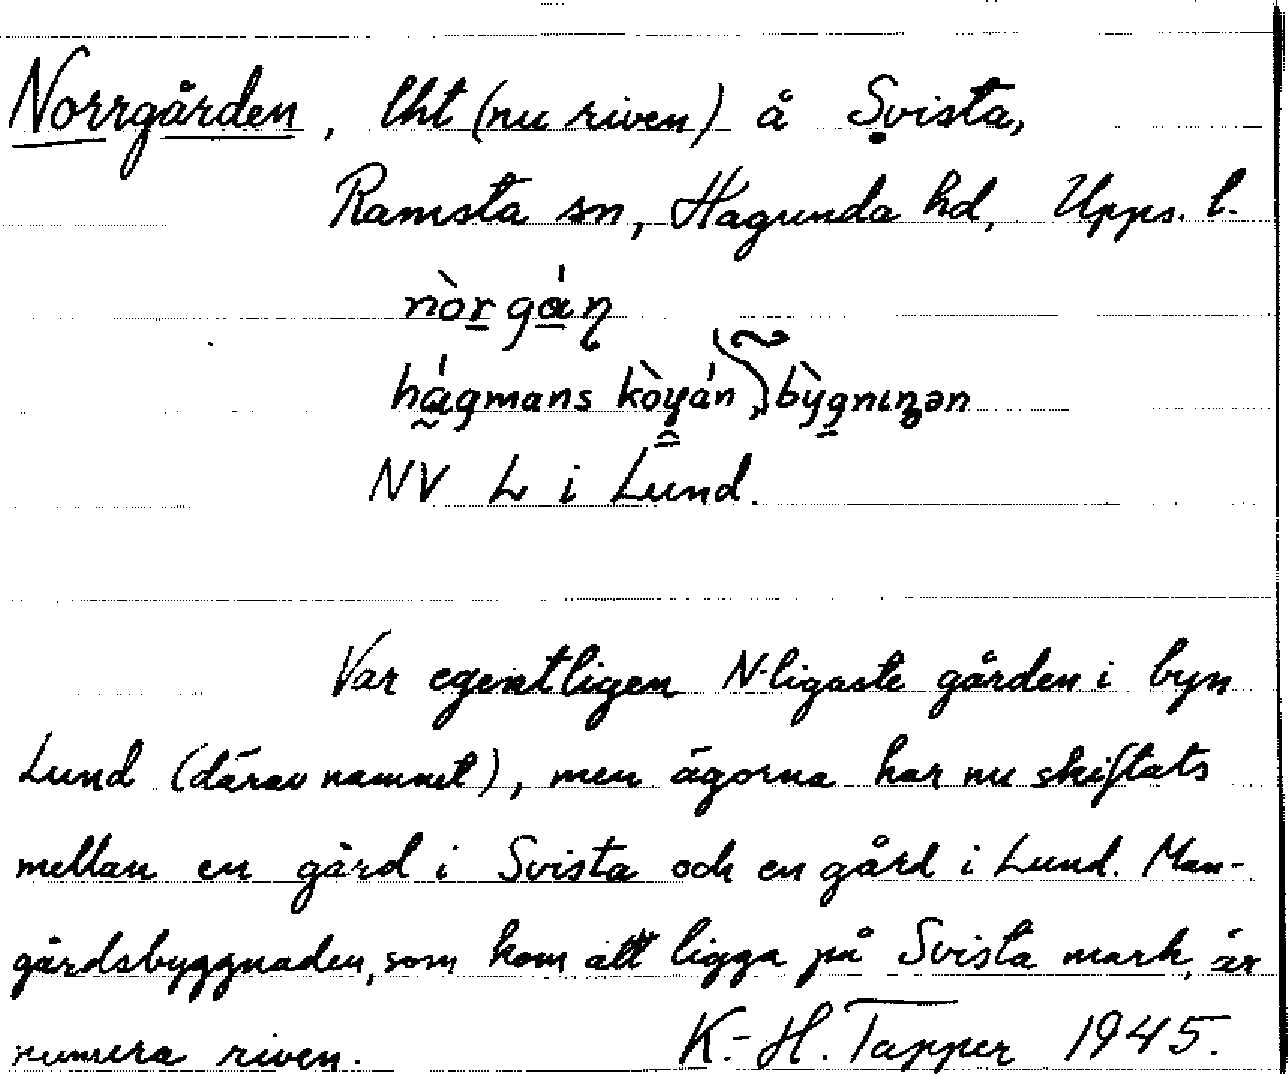 Norrgården, lht (nu riven) å Svista,
Ramsta sn, Hagunda hd, Upps. l.
nòrgáṇ
hágmans kòyán, ~ bỳgnıŋən
NV L i Lund.
Var egentligen N-ligaste gården i byn
Lund (därav namnet), men ägorna har nu skiftats
mellan en gård i Svista och en gård i Lund. Man-
gårdsbyggnaden, som kom att ligga på Svista mark, är
numera riven. K.-H. Tapper 1945.